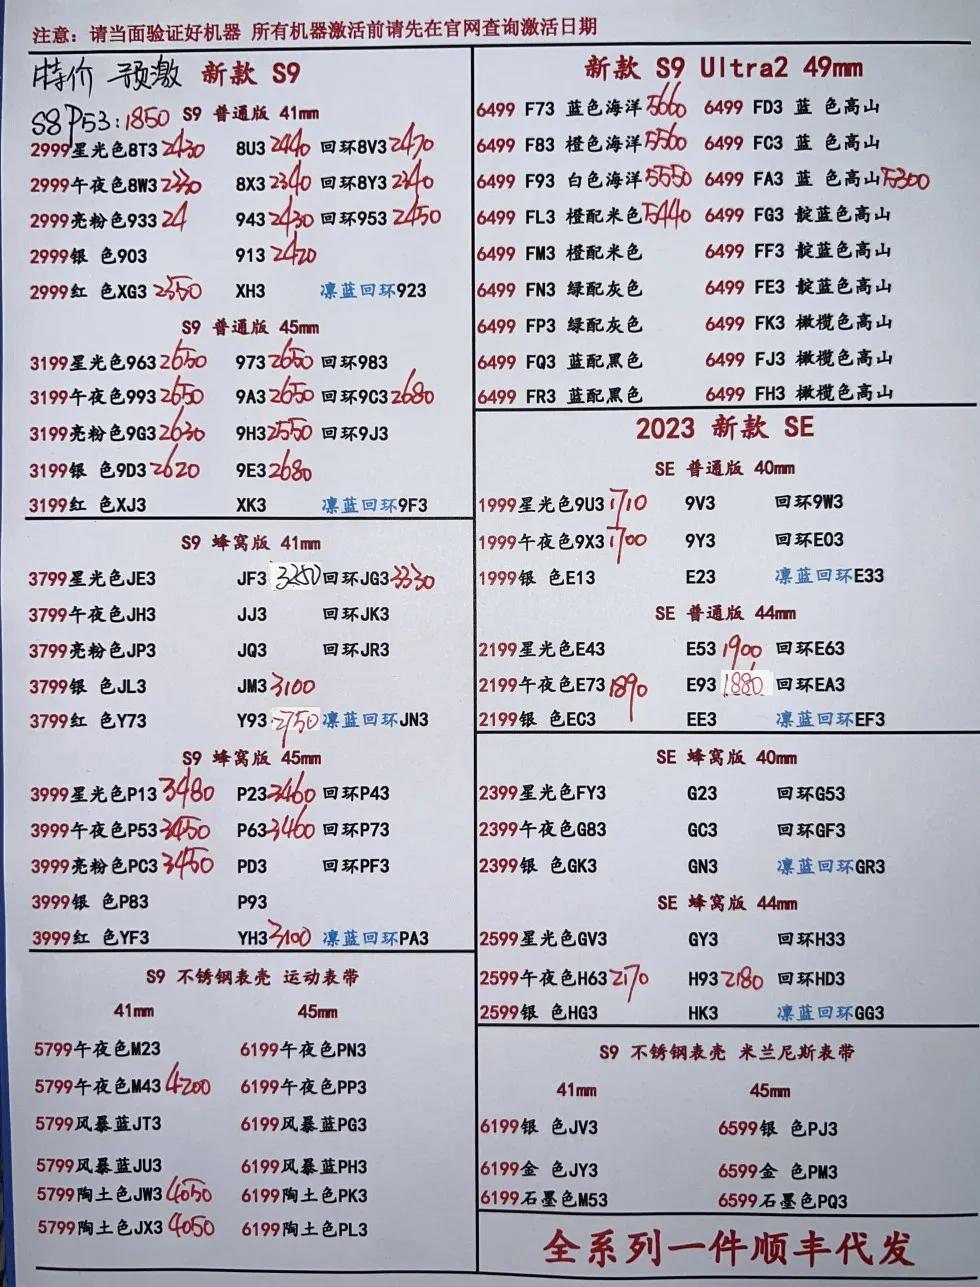 注意：请当面验证好机器 所有机器激活前请先在官网查询激活日期
特价 预激 新款 S9
S8 P53:1850 S9 普通版 41mm
2999星光色8T3 2430 8U3 2440 回环8V3 2470
2999午夜色8W3 2330 8X3 2340 回环8Y3 2340
2999亮粉色933 24 943 2430 回环953 2450
2999银 色903 913 2420
2999红 色XG3 2550 XH3 凛蓝回环923
S9 普通版 45mm
3199星光色963 2650 973 2650 回环983
3199午夜色993 2650 9A3 2650 回环9C3 2680
3199亮粉色9G3 2630 9H3 2550 回环9J3
3199银 色9D3 2620 9E3 2680
3199红 色XJ3 XK3 凛蓝回环9F3
S9 蜂窝版 41mm
3799星光色JE3 JF3 3250 回环JG3 3330
3799午夜色JH3 JJ3 回环JK3
3799亮粉色JP3 JQ3 回环JR3
3799银 色JL3 JM3 3100
3799红 色Y73 Y93 2750 凛蓝回环JN3
S9 蜂窝版 45mm
3999星光色P13 3480 P23 3460 回环P43
3999午夜色P53 3450 P63 3460 回环P73
3999亮粉色PC3 3450 PD3 回环PF3
3999银 色P83 P93
3999红 色YF3 YH3 3100 凛蓝回环PA3
S9 不锈钢表壳 运动表带
41mm 45mm
5799午夜色M23 6199午夜色PN3
5799午夜色M43 4200 6199午夜色PP3
5799风暴蓝JT3 6199风暴蓝PG3
5799风暴蓝JU3 6199风暴蓝PH3
5799陶土色JW3 4050 6199陶土色PK3
5799陶土色JX3 4050 6199陶土色PL3
新款 S9 Ultra2 49mm
6499 F73 蓝色海洋 5660 6499 FD3 蓝 色高山
6499 F83 橙色海洋 5560 6499 FC3 蓝 色高山
6499 F93 白色海洋 5550 6499 FA3 蓝 色高山 5300
6499 FL3 橙配米色 5440 6499 FG3 靛蓝色高山
6499 FM3 橙配米色 6499 FF3 靛蓝色高山
6499 FN3 绿配灰色 6499 FE3 靛蓝色高山
6499 FP3 绿配灰色 6499 FK3 橄榄色高山
6499 FQ3 蓝配黑色 6499 FJ3 橄榄色高山
6499 FR3 蓝配黑色 6499 FH3 橄榄色高山
2023 新款 SE
SE 普通版 40mm
1999星光色9U3 1710 9V3 回环9W3
1999午夜色9X3 1700 9Y3 回环E03
1999银 色E13 E23 凛蓝回环E33
SE 普通版 44mm
2199星光色E43 E53 1900 回环E63
2199午夜色E73 1890 E93 1880 回环EA3
2199银 色EC3 EE3 凛蓝回环EF3
SE 蜂窝版 40mm
2399星光色FY3 G23 回环G53
2399午夜色G83 GC3 回环GF3
2399银 色GK3 GN3 凛蓝回环GR3
SE 蜂窝版 44mm
2599星光色GV3 GY3 回环H33
2599午夜色H63 2170 H93 2180 回环HD3
2599银 色HG3 HK3 凛蓝回环GG3
S9 不锈钢表壳 米兰尼斯表带
41mm 45mm
6199银 色JV3 6599银 色PJ3
6199金 色JY3 6599金 色PM3
6199石墨色M53 6599石墨色PQ3
全系列一件顺丰代发